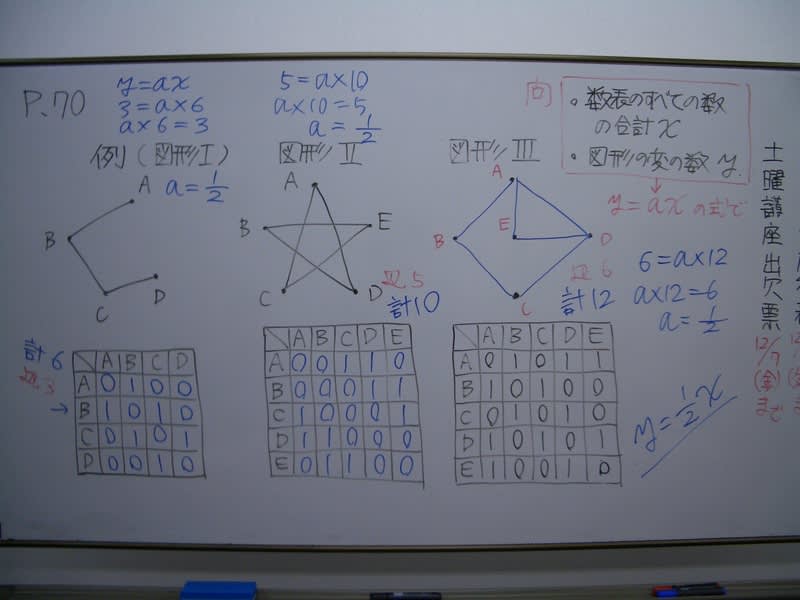 P.70
y=ax
3=a×6
a×6=3
例(図形Ⅰ)
a=1/2
A
B
C
D
計6
辺3
→
A B C D
A 0 1 0 0
B 1 0 1 0
C 0 1 0 1
D 0 0 1 0
5=a×10
a×10=5
a=1/2
図形Ⅱ
A
B
E
C
D
辺5
計10
A B C D E
A 0 0 1 1 0
B 0 0 0 1 1
C 1 0 0 0 1
D 1 1 0 0 0
E 0 1 1 0 0
図形Ⅲ
A
B
E
D
C
辺6
計12
A B C D E
A 0 1 0 1 1
B 1 0 1 0 0
C 0 1 0 1 0
D 1 0 1 0 1
E 1 0 0 1 0
・数表のすべての数
の合計x
・図形の変の数y
↓
y=axの式で
6=a×12
a×12=6
a=1/2
y=1/2x
土曜講座出欠票
12/7
(金)
まで